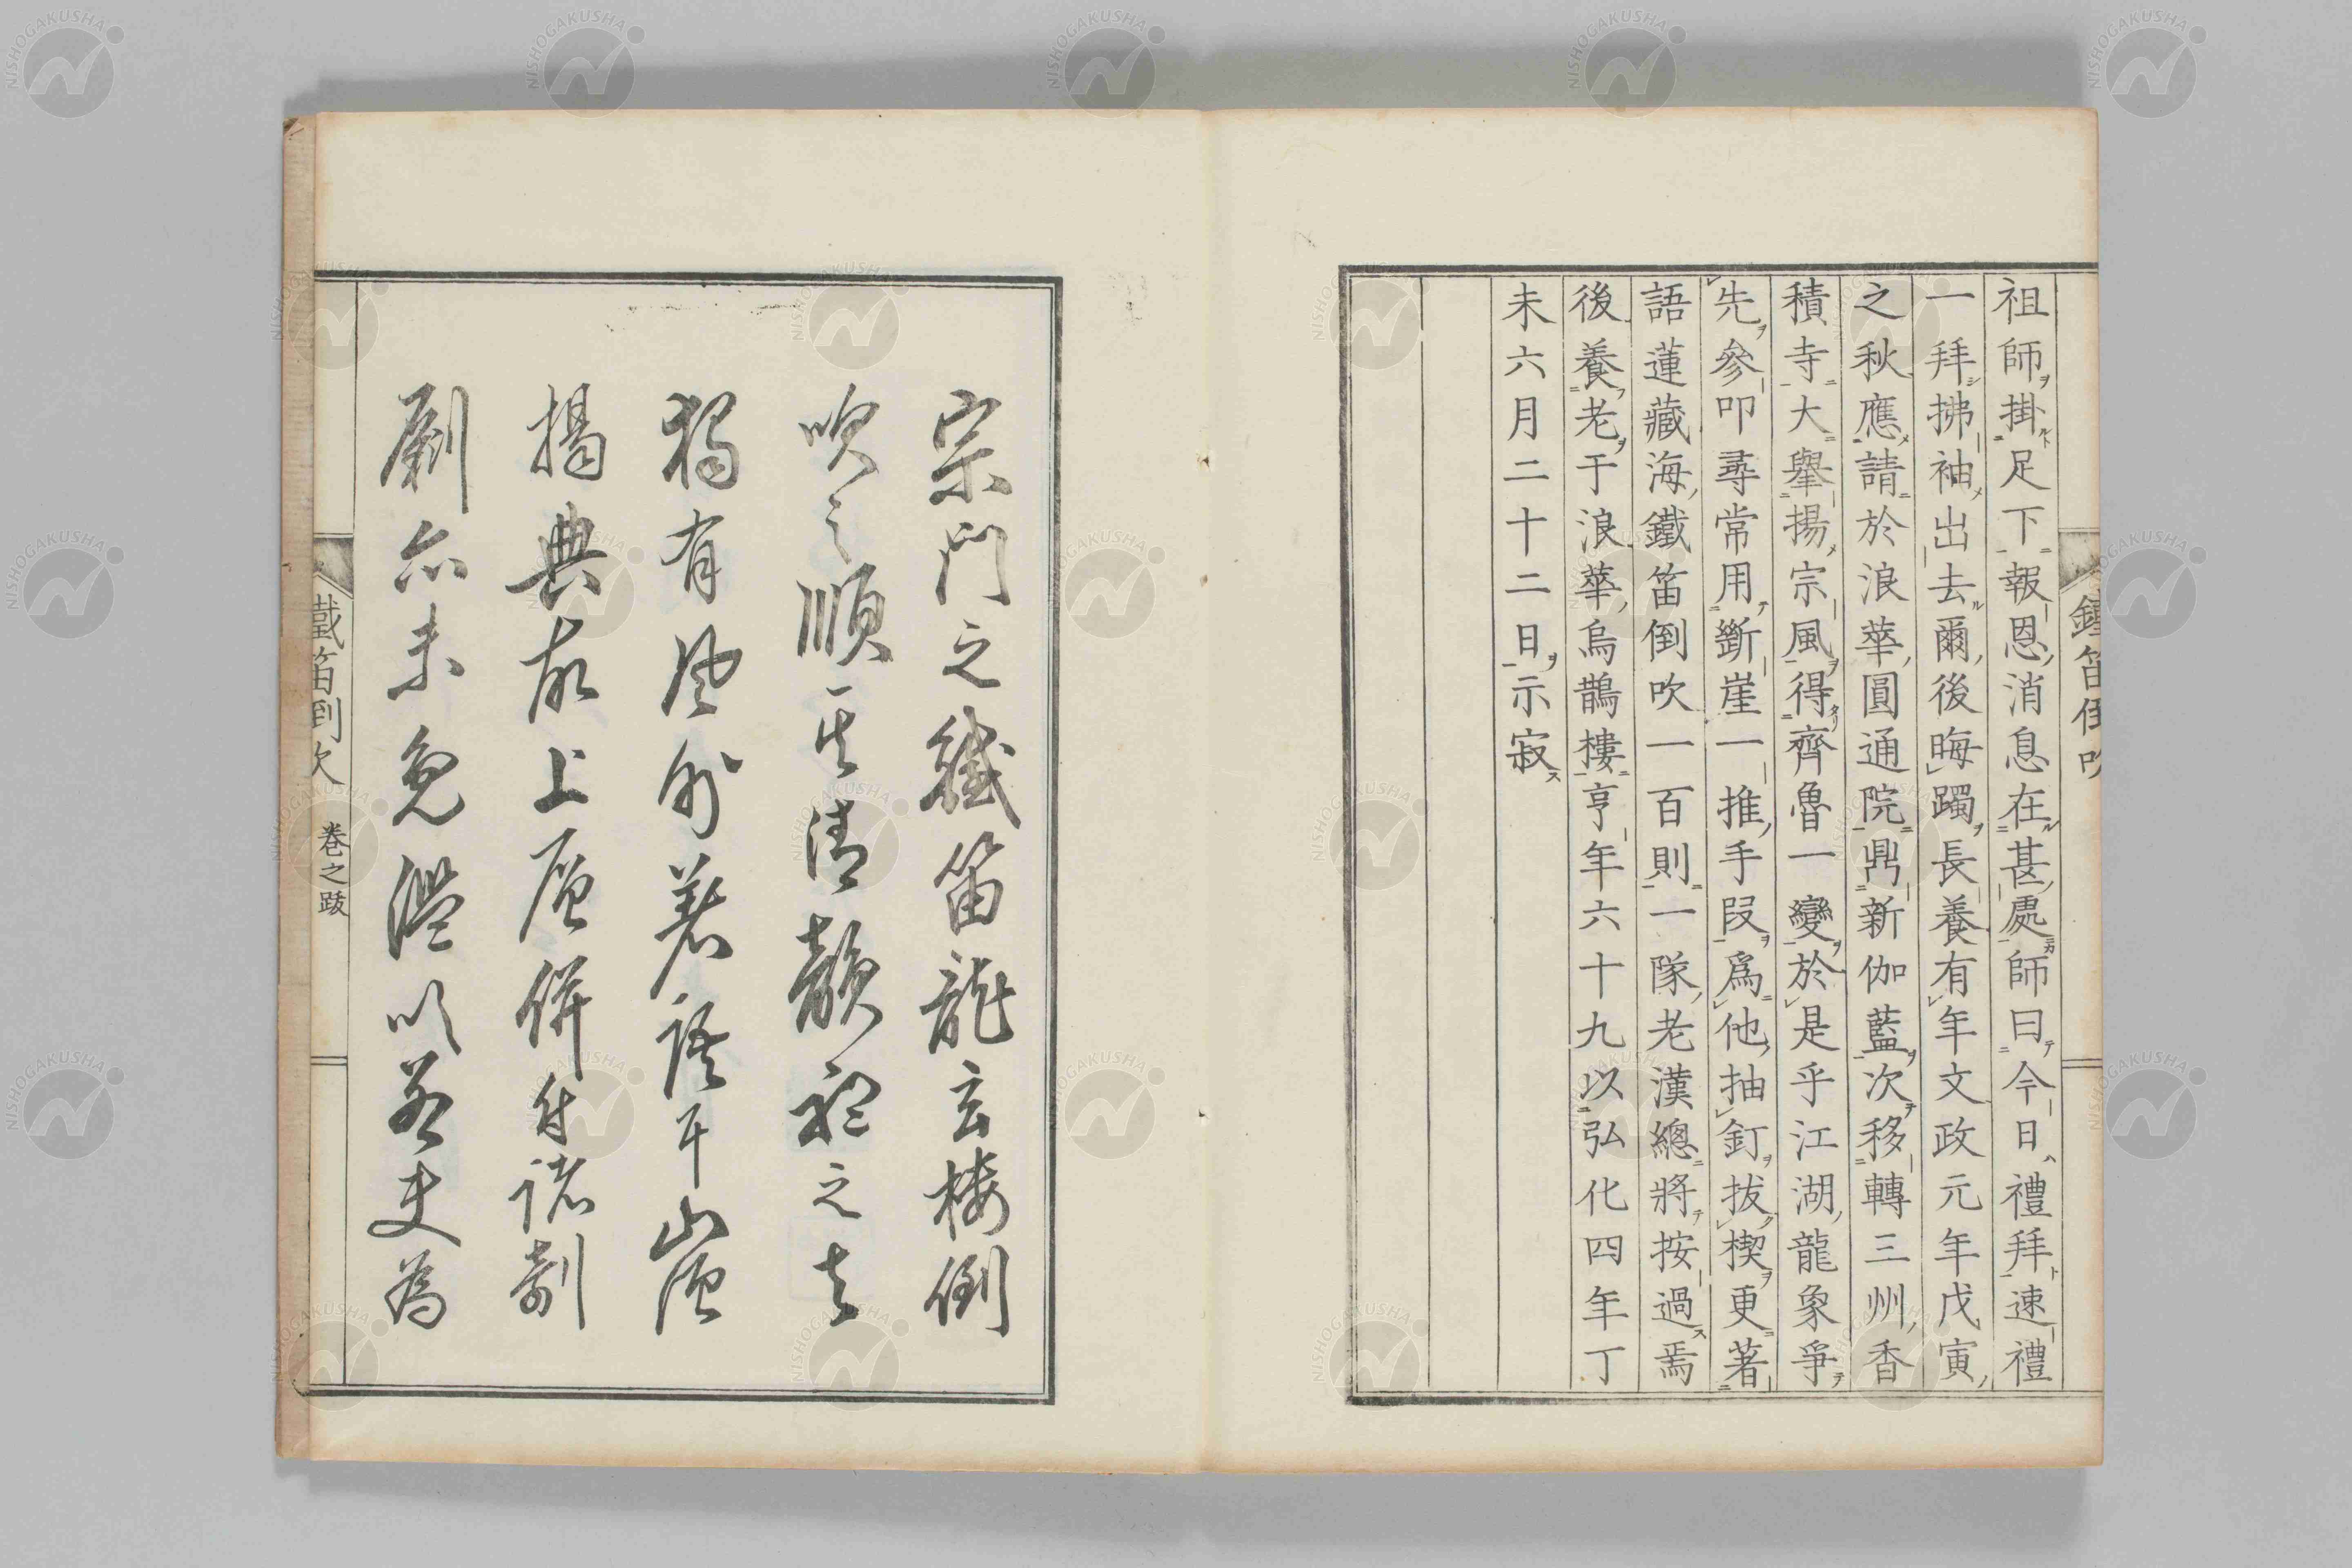 祖師掛足下報恩消息在甚處師曰今日禮拜速禮
一拜拂袖出去爾後晦躅長養有年文政元年戊寅
之秋應請於浪華圓通院鼎新伽藍次移轉三州香
積寺大擧揚宗風得齊魯一變於是乎江湖龍象爭
先參叩尋常用斷崖一推手段爲他抽釘拔楔更著
語蓮藏海鐵笛倒吹一百則一隊老漢總將按過焉
後養老于浪華烏鵲樓亨年六十九以弘化四年丁
未六月二十二日示寂
鐵笛倒吹
宗門之鐵笛龍玄樓倒
吹之順其清韻和之者
獨有風外著語耳山
揭典故上層併付諸剞
劂亦未免濫以為
鐵笛倒吹 卷之跋
NISHOGAKUSHA